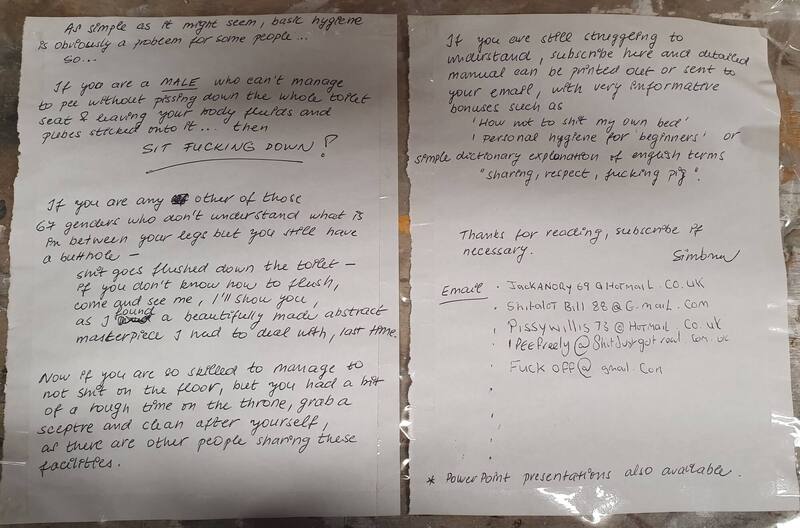 As simple as it might seem, basic hygiene
is obviously a problem for some people...
So...
If you are a MALE who can't manage
to pee without pissing down the whole toilet
seat & leaving your body fluids and
pubes sticked onto it... then
SIT FUCKING DOWN!
If you are any other of those
67 genders who don't understand what is
in between your legs but you still have
a butthole –
shit goes flushed down the toilet –
if you don't know how to flush,
come and see me, I'll show you,
as I found a beautifully made abstract
masterpiece I had to deal with, last time.
Now if you are so skilled to manage to
not shit on the floor, but you had a bit
of a rough time on the throne, grab a
sceptre and clean after yourself,
as there are other people sharing these
facilities.
If you are still struggling to
understand, subscribe here and detailed
manual can be printed out or sent to
your email, with very informative
bonuses such as
'How not to shit my own bed'
'Personal hygiene for beginners' or
simple dictionary explanation of english terms
"sharing, respect, fucking pig".
Thanks for reading, subscribe if
necessary.
Email
· JackANORY69@HotmaiL.Co.uK
· ShitaloT Bill 88@G.maiL.Com
· Pissywillis73@HotmaiL.Co.uk
· IPEEFreely@ShitJustgotreal.com.uk
Fuck off@gmail.Com
* PowerPoint presentations also available.